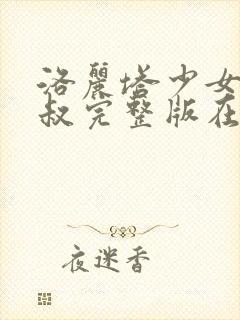 洛麗塔少女
叔完整版在
夜迷香